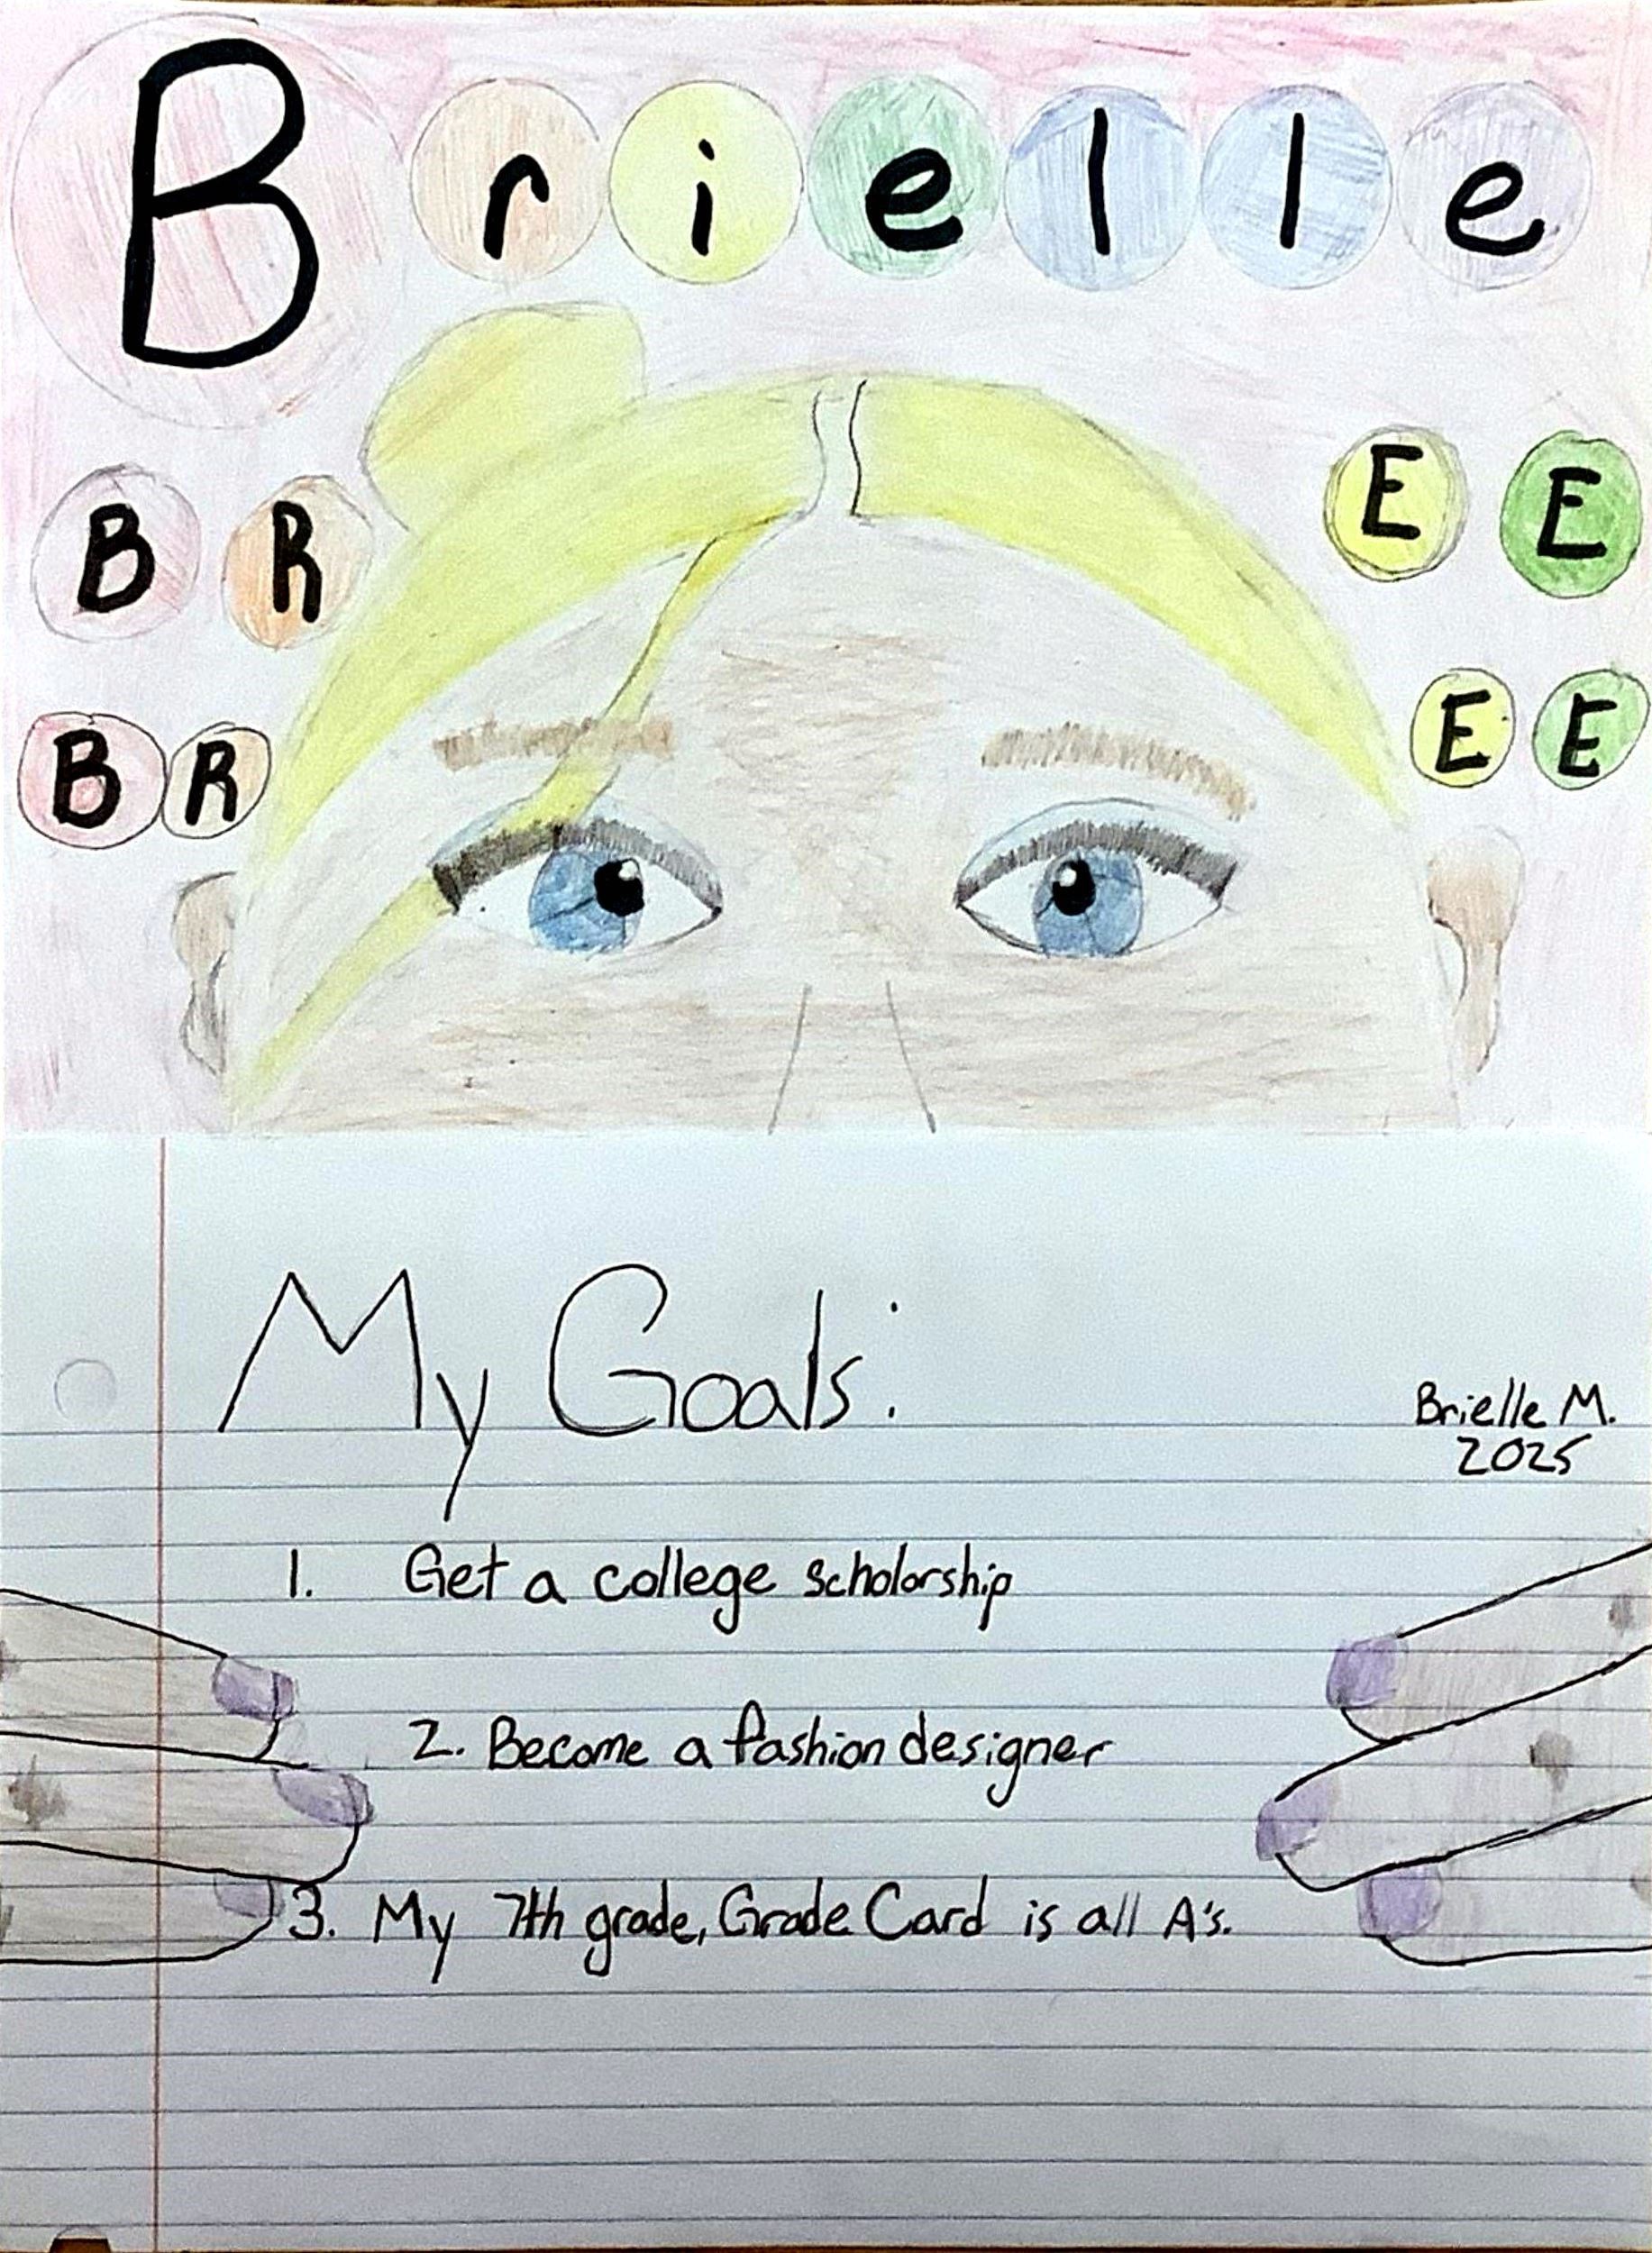 Brielle
B R E E
B R E E
My Goals:
Brielle M.
2025
1. Get a college scholorship
2. Become a fashion designer
3. My 7th grade, Grade Card is all A's.